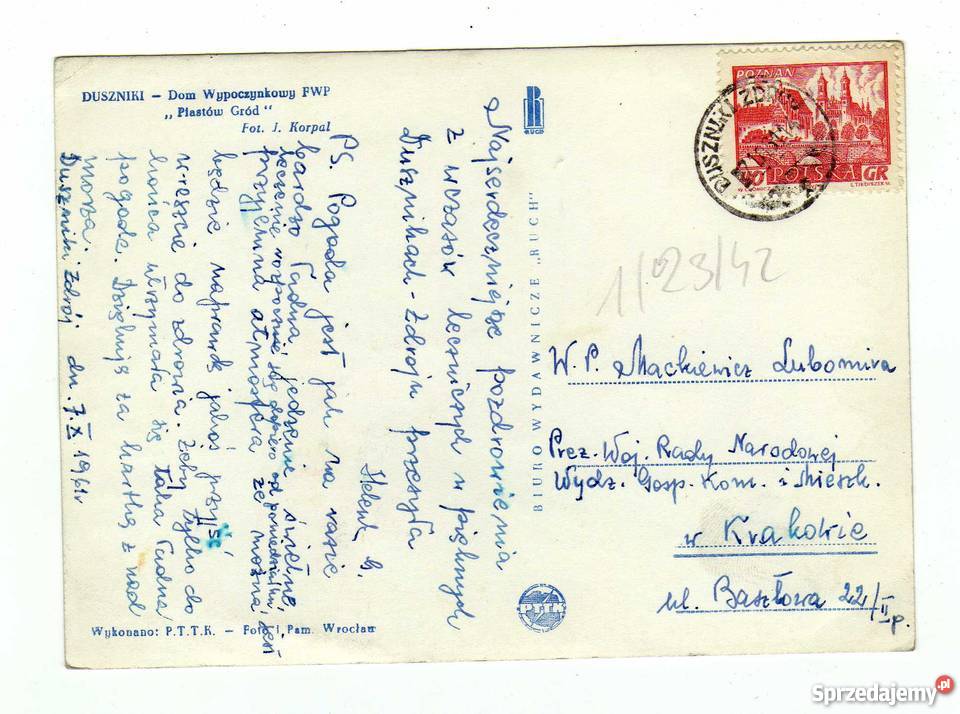 DUSZNIKI — Dom Wypoczynkowy FWP
„Piastów Gród"
Fot. J. Korpal
Najserdeczniejsze pozdrowienia
z wczasów leczniczych w pięknych
Dusznikach-Zdroju przesyła
Helena G.
PS. Pogoda jest jak na razie
bardzo ładna, jedzenie świetne,
leczenie rozpocznie się dopiero od poniedziałku. Jest
przyjemna atmosfera że można
będzie naprawdę jakoś przyjść
wreszcie do zdrowia. Żeby tylko do
końca utrzymała się taka ładna
pogoda. Dziękuję za kartkę z nad
morza.
Duszniki Zdrój dn. 7.X 1961r
Wykonano: P.T.T.K. — Fot. i Pam. Wrocław
RUCH
BIURO WYDAWNICZE „RUCH"
PTTK
POZNAŃ
POLSKA
GR
DUSZNIKI ZDRÓJ
1/23/42
W.P. Mackiewicz Lubomira
Prez. Woj. Rady Narodowej
Wydz. Gosp. Kom. i Mieszk.
w Krakowie
ul. Basztowa 22/II p.
Sprzedajemy.pl